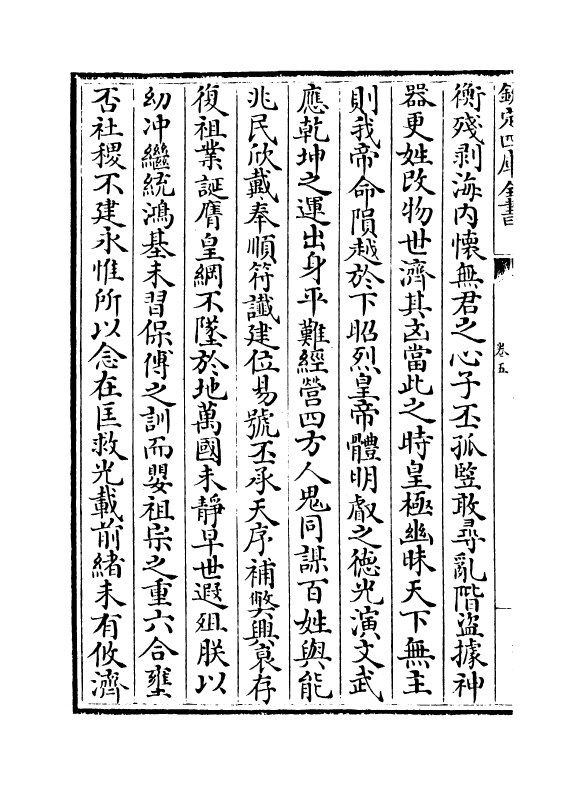 欽定四庫全書
卷五
衡殘剥海内懷無君之心子丕孤竪敢㝷亂階盜據神
器更姓改物世濟其凶當此之時皇極幽昧天下無主
則我帝命隕越於下昭烈皇帝體明叡之德光演文武
應乾坤之運出身平難經營四方人鬼同謀百姓與能
兆民欣戴奉順符讖建位易號丕承天序補弊興衰存
復祖業誕膺皇綱不墜於地萬國未靜早世遐殂朕以
幼沖繼統鴻基未習保傅之訓而嬰祖宗之重六合壅
否社稷不建永惟所以念在匡救光載前緒未有攸濟